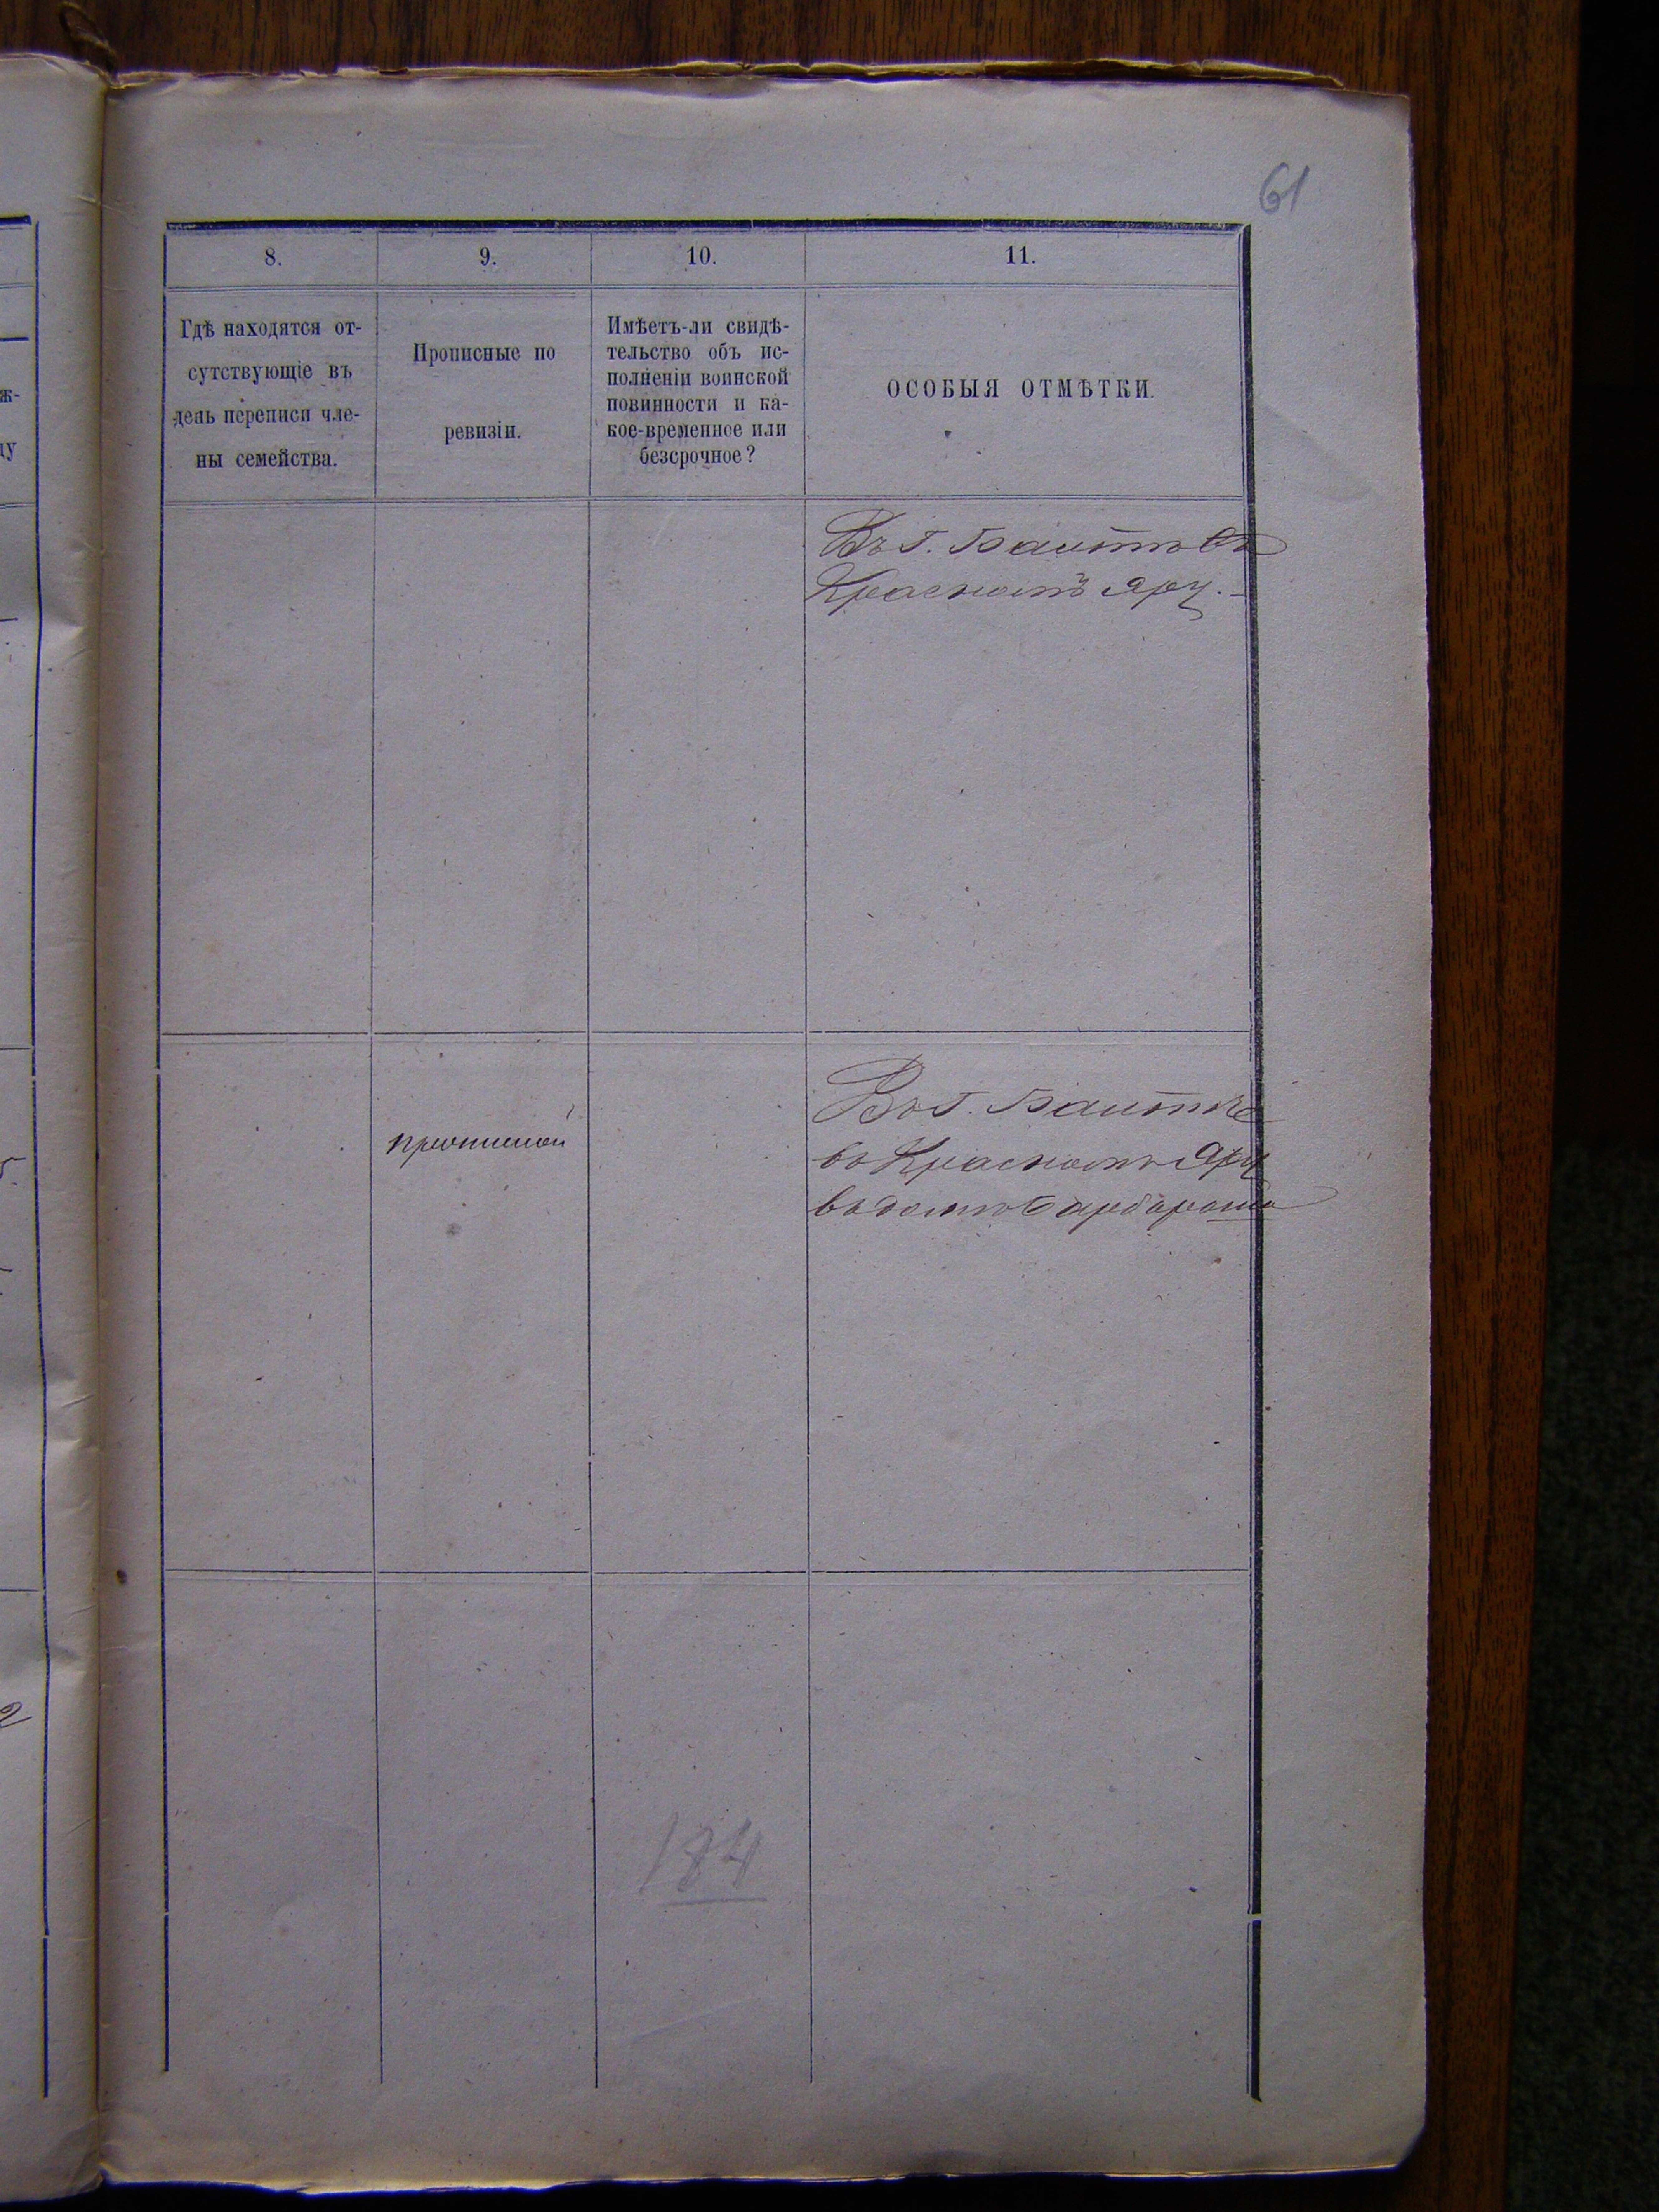 61
8.
9.
10.
11.
Гдѣ находятся от-
сутствующіе въ
день переписи чле-
ны семейства.
Прописные по
ревизіи.
Имѣетъ-ли свидѣ-
тельство объ ис-
полненіи воинской
повинности и ка-
кое-временное или
безсрочное?
ОСОБЫЯ ОТМѢТКИ.
Въ г. Балтѣ въ
Красномъ яру.
прописной
Въ г. Балтѣ
въ Красномъ Яру
въ домѣ
184
ж-
ду
2